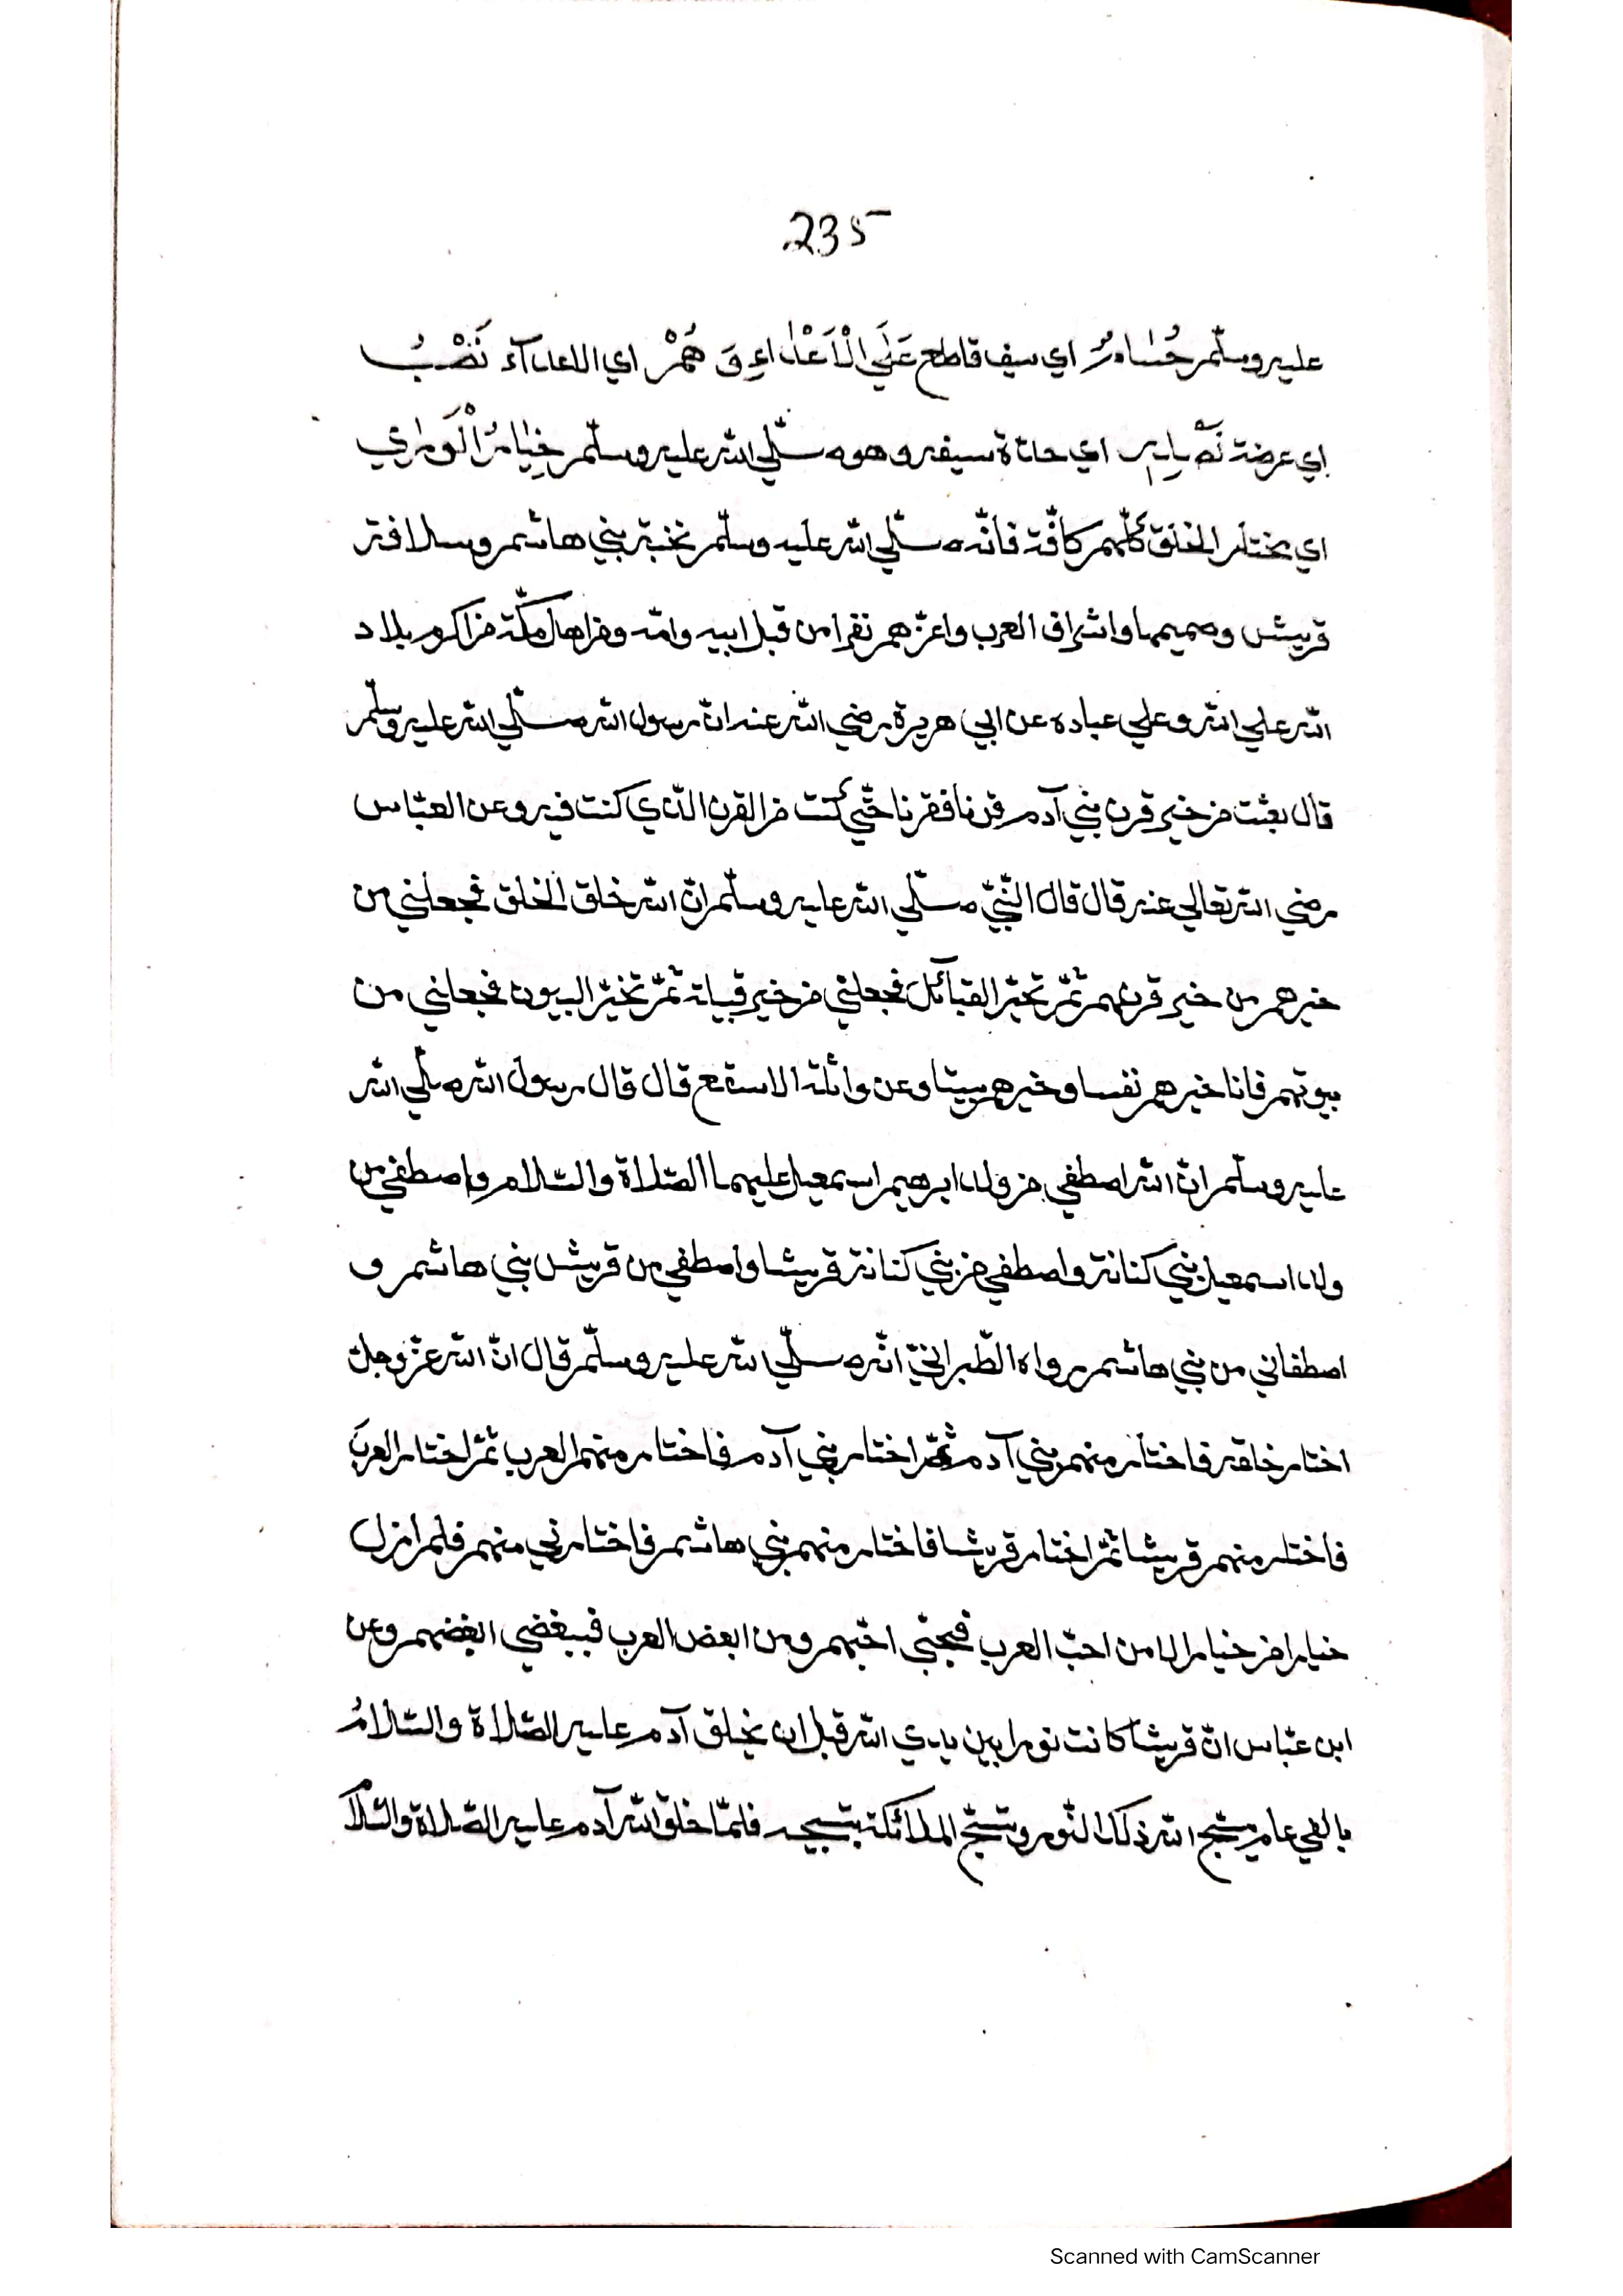 235
عليه وسلّم حُسَامٌ اي سيف قاطع عَلَي الْاَعْدَاءِ وَ هُمْ اي الاعدآء نَصْبُ
اي عرضة نَصْلِهِ اي حدّة سيفه وهو صلّي الله عليه وسلّم خِيَارُ الْوَرٰي
اي يختار الخلق كلّهم كافّة فانّه صلّي الله عليه وسلّم نخبة بني هاشم وسلافة
قريش وصميمها واشراف العرب واعزّهم نفرا من قبل ابيه وامّه ومن اهل مكّة من اكرم بلاد
الله علي الله وعلي عباده عن ابي هريرة رضي الله عنه انّ رسول الله صلّي الله عليه وسلّم
قال بعثت من خير قرن بني آدم قرنا فقرنا حتّي كنت من القرن الّذي كنت فيه وعن العبّاس
رضي الله تعالي عنه قال قال النّبيّ صلّي الله عليه وسلّم انّ الله خلق الخلق فجعلني من
خيرهم من خير قرنهم ثمّ تخيّر القبآئل فجعلني من خير قبيلة ثمّ تخيّر البيوت فجعلني من
بيوتهم فانا خيرهم نفسا وخيرهم بيتا وعن واثلة الاسقع قال قال رسول الله صلّي الله
عليه وسلّم انّ الله اصطفي من ولد ابرهيم اسمعيل عليهما الصّلاة والسّلام واصطفي من
ولد اسمعيل بني كنانة واصطفي من بني كنانة قريشا واصطفي من قريش بني هاشم و
اصطفاني من بني هاشم رواه الطّبرانيّ انّه صلّي الله عليه وسلّم قال انّ الله عزّ وجلّ
اختار خلقه فاختار منهم بني آدم ثمّ اختار بني آدم فاختار منهم العرب ثمّ اختار العرب
فاختار منهم قريشا ثمّ اختار قريشا فاختار منهم بني هاشم فاختارني منهم فلم ازل
خيارا من خيار الا من احبّ العرب فبحبّي احبّهم ومن ابغض العرب فببغضي ابغضهم وعن
ابن عبّاس انّ قريشا كانت نورا بين يدي الله قبل ان يخلق آدم عليه الصّلاة والسّلامُ
بالفي عام يسبّح الله ذلك النّور وتسبّح الملائكة بتسبيحه فلمّا خلق الله آدم عليه الصّلاة والسّلا
Scanned with CamScanner